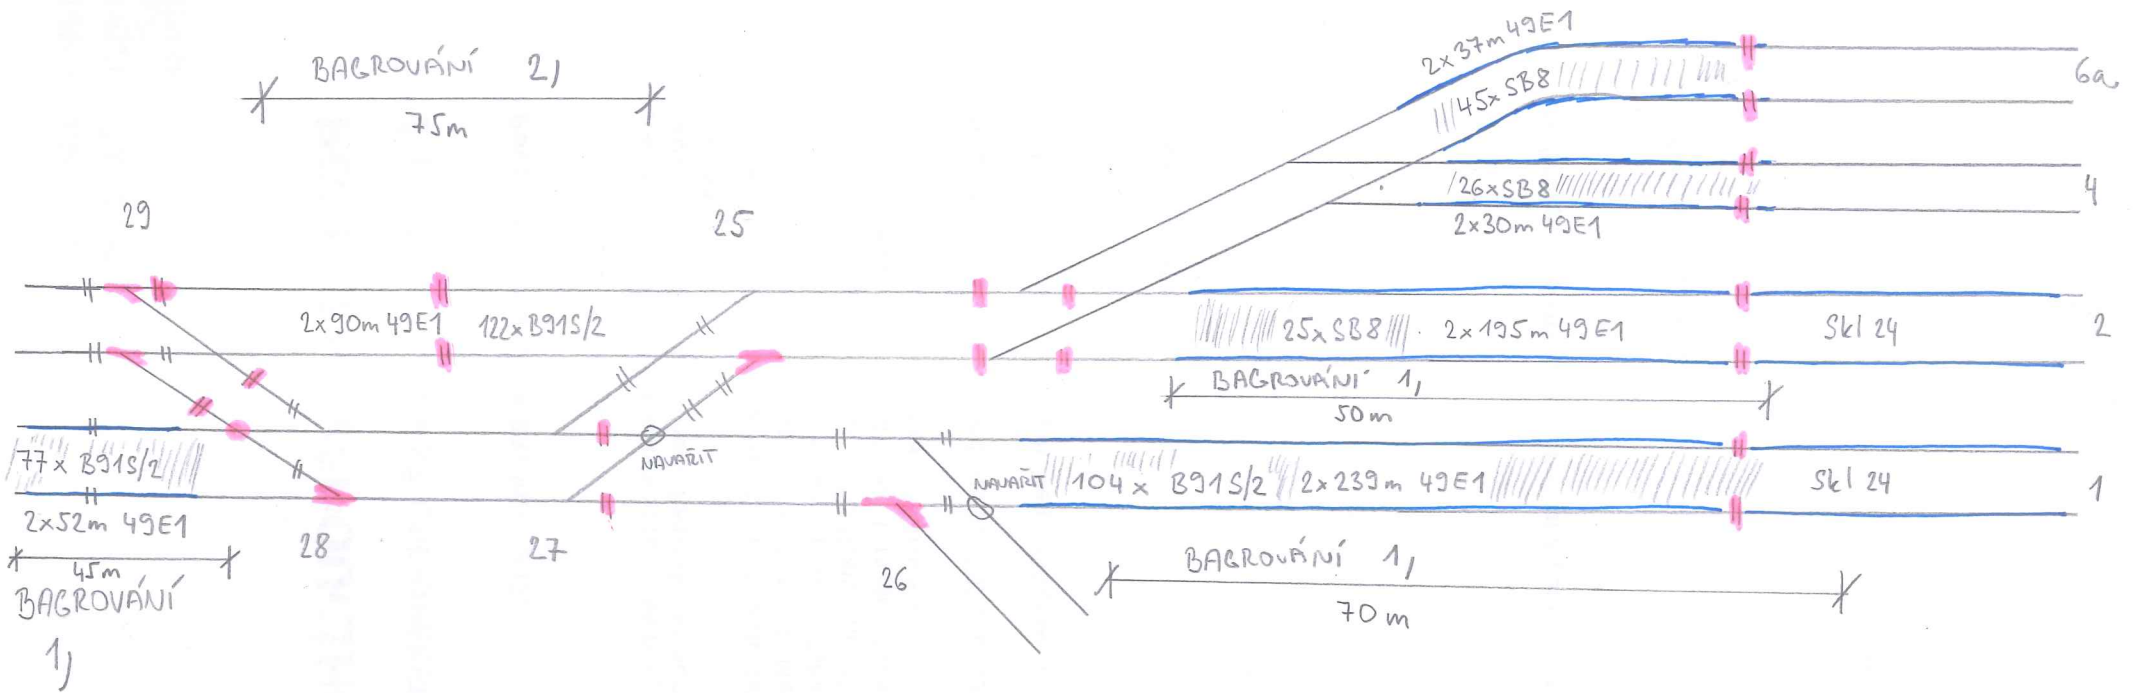 2x37m 49E1
BAGROVÁNÍ 2)
75m
45x SB8
6a
26xSB8
4
2x30m 49E1
29
25
2x90m 49E1 122xB91S/2
25xSB8 2x195m 49E1 Skl 24
2
BAGROVÁNÍ 1)
50m
NAVAŘIT
77x B91S/2
NAVAŘIT 104x B91S/2 2x239m 49E1 Skl 24
1
2x52m 49E1
28
27
26
45m
BAGROVÁNÍ
1)
BAGROVÁNÍ 1)
70m